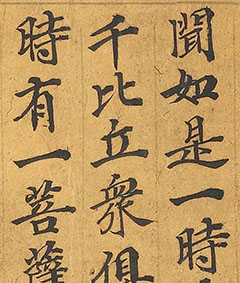 聞如是一時
千比丘眾俱
時有一菩薩